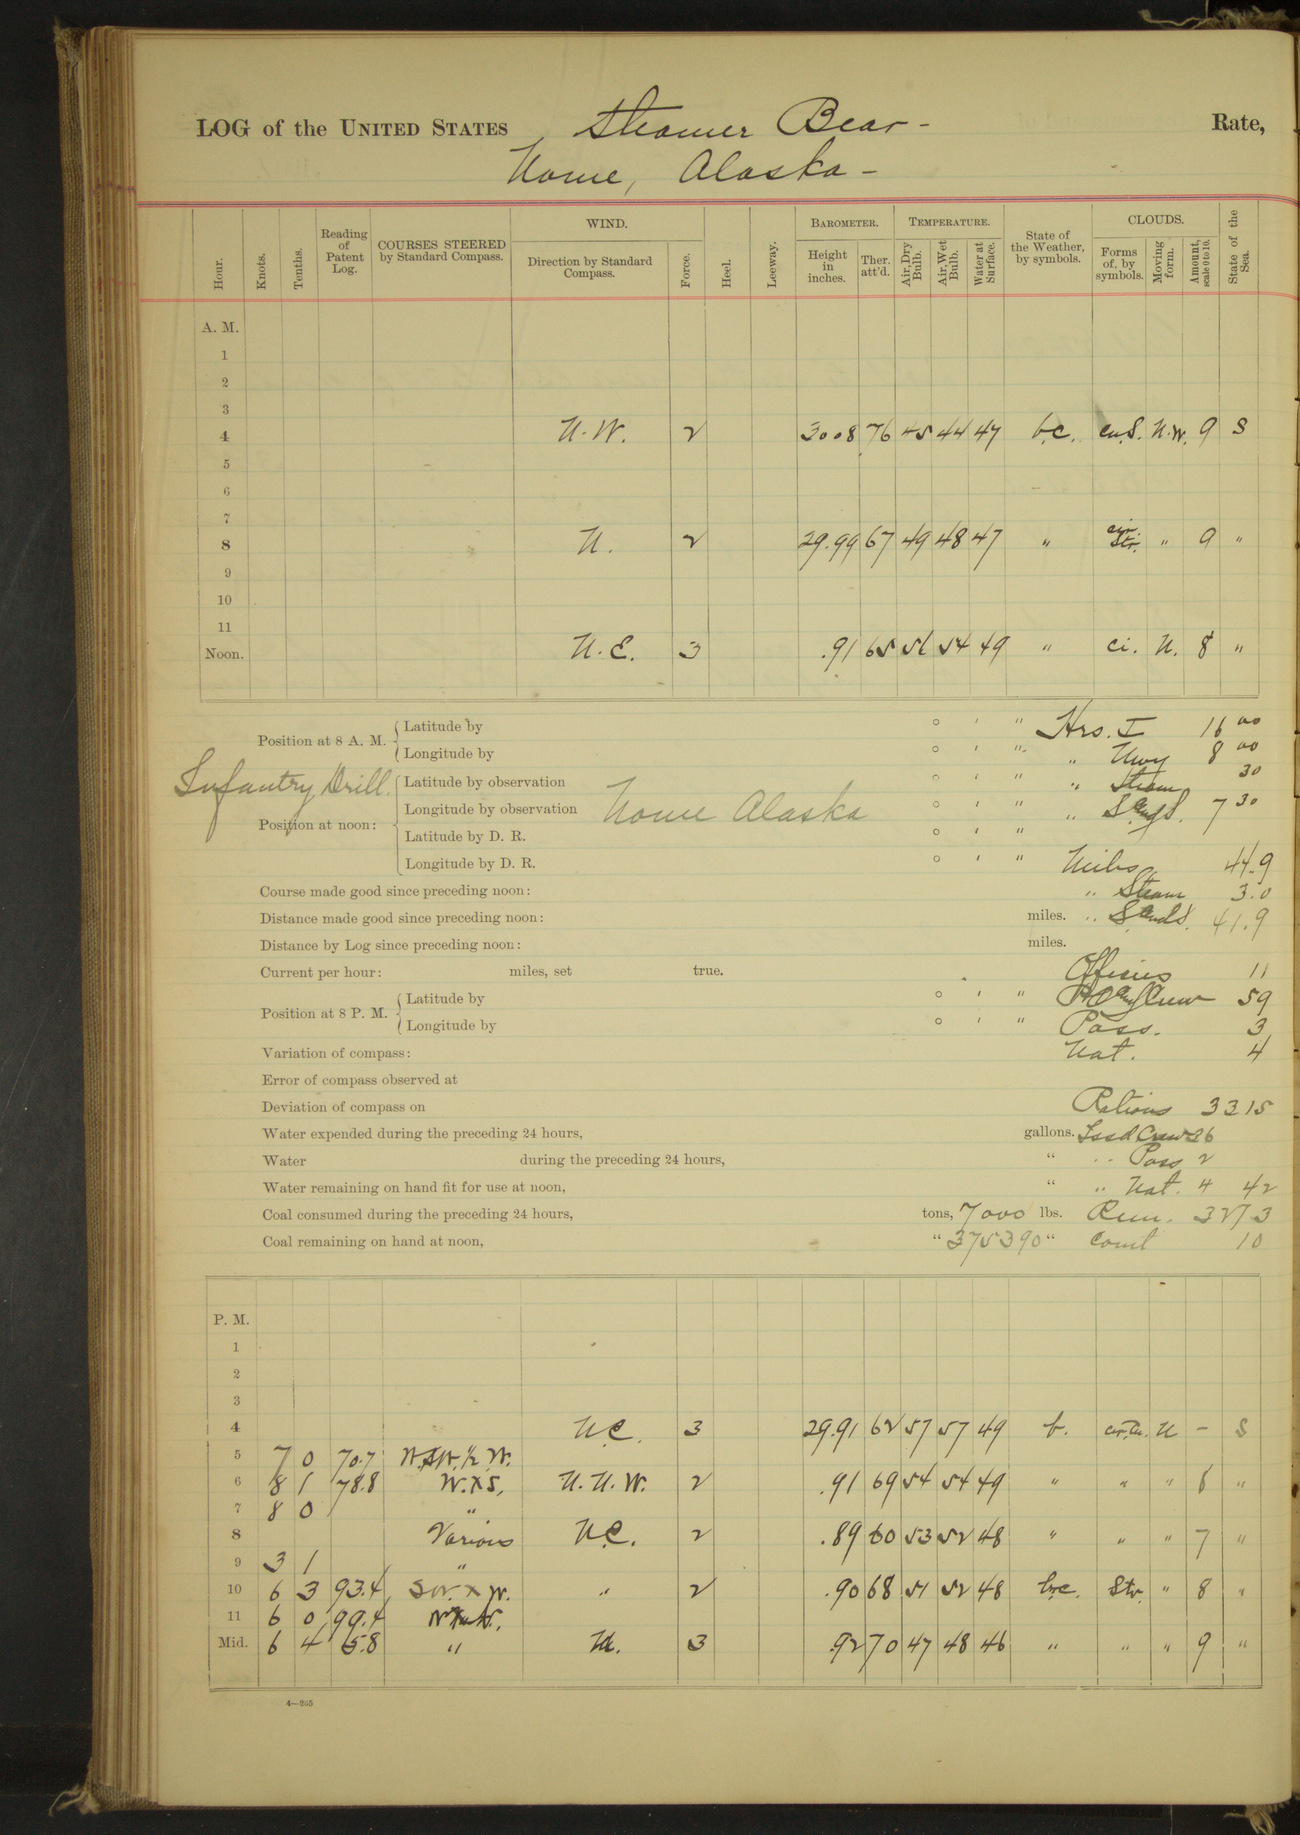 LOG of the UNITED STATES Steamer Bear - Rate,
Nome, Alaska -
Hour. Knots. Tenths. Reading of Patent Log. COURSES STEERED by Standard Compass. WIND. Direction by Standard Compass. Force. Heel. Leeway. BAROMETER. Height in inches. Ther. att'd. TEMPERATURE. Air, Dry Bulb. Air, Wet Bulb. Water at Surface. State of the Weather, by symbols. CLOUDS. Forms of, by symbols. Moving form. Amount, scale 0 to 10. State of the Sea.
A. M.
1
2
3
4 N.W. 2 30.08 76 45 44 47 b.c. cu.S. N.W. 9 S
5
6
7
8 N. 2 29.99 67 49 48 47 " cir. Str. " 9 "
9
10
11
Noon. N.E. 3 .91 65 56 54 49 " ci. N. 8 "
Position at 8 A. M. Latitude by ° ' " Hrs. I 16 00
Longitude by ° ' " " Nwy 8 00
Infantry Drill.
Latitude by observation ° ' " " Steam 30
Position at noon: Longitude by observation Nome Alaska ° ' " " S and S. 7 30
Latitude by D. R. ° ' "
Longitude by D. R. ° ' " Miles 44.9
Course made good since preceding noon: " Steam 3.0
Distance made good since preceding noon: miles. " S and S. 41.9
Distance by Log since preceding noon: miles.
Current per hour: miles, set true. Officers 11
Position at 8 P. M. Latitude by ° ' " P O and Crew 59
Longitude by ° ' " Pass. 3
Variation of compass: Nat. 4
Error of compass observed at
Deviation of compass on Rations 3315
Water expended during the preceding 24 hours, gallons. Issd Crew 36
Water during the preceding 24 hours, " " Pass 2
Water remaining on hand fit for use at noon, " " Nat. 4 42
Coal consumed during the preceding 24 hours, tons, 7000 lbs. Rem. 3273
Coal remaining on hand at noon, " 375390 " Comt 10
P. M.
1
2
3
4 N.E. 3 29.91 62 57 57 49 b. cir.Cu. N - S
5 7 0 70.7 W.S.W.½W.
6 8 1 78.8 W.XS. N.N.W. 2 .91 69 54 54 49 " " " 6 "
7 8 0 "
8 Various N.E. 2 .89 60 53 52 48 " " " 7 "
9 3 1 "
10 6 3 93.4 SW.XW. " 2 .90 68 51 52 48 b.c. Str. " 8 "
11 6 0 99.4
Mid. 6 4 5.8 " 3 .92 70 47 48 46 " " " 9 "
4—265